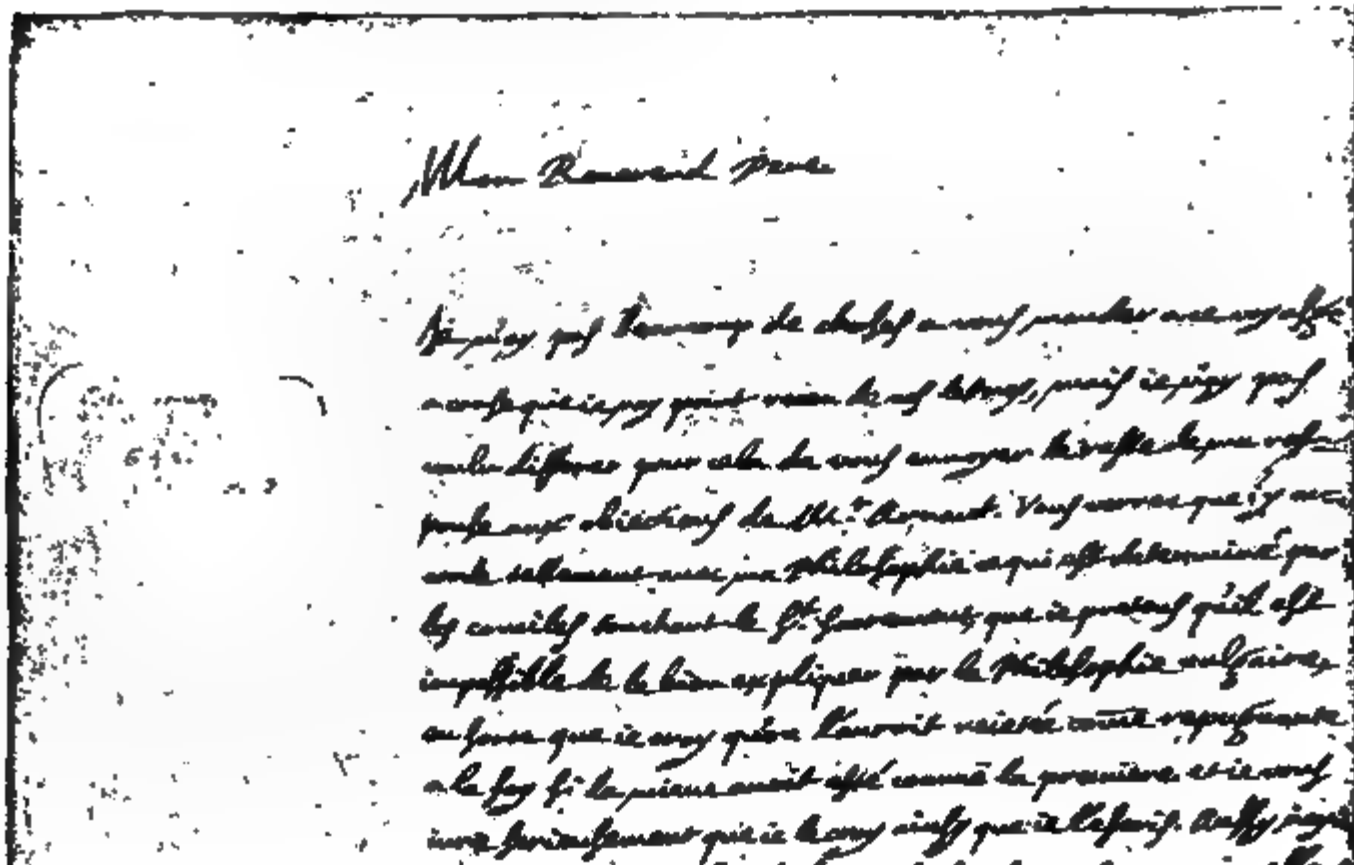 Mon Reverend Pere
Ie n'ay pas beaucoup de choses a vous mander
a cause que ie n'ay point receu de vos lettres, mais ie n'ay pas
voulu differer pour cela de vous enuoyer le reste de ma res-
ponse aux obiections de Mr. Arnaut. Vous verres que i'y ac-
corde tellement auec ma Philosophie ce qui est determiné par
les conciles touchant le St. Sacrement, que ie pretens qu'il est
impossible de le bien expliquer par la Philosophie vulgaire,
en sorte que ie croy qu'on l'auroit reietée cōme repugnante
a la foy si la miene auoit esté connuë la premiere. et ie vous
iure serieusement que ie le croy ainsy que ie l'escris. Aussy